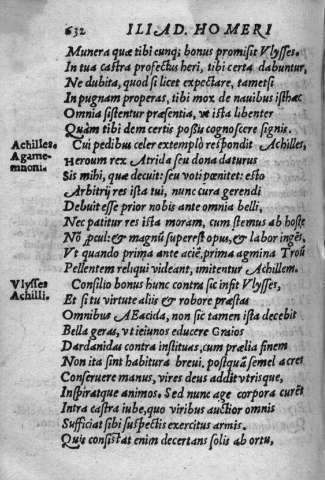 632 ILIAD. HOMERI
Munera quæ tibi cunq; bonus promisit Vlysses.
In tua castra profectus heri, tibi certa dabuntur,
Ne dubita, quod si licet expectare, tametsi
In pugnam properas, tibi mox de nauibus isthæc
Omnia sistentur præsentia, vt ista libenter
Quàm tibi dem certis possis cognoscere signis.
Achilles. Cui pedibus celer extemplò respondit Achilles,
Agame- Heroum rex Atrida seu dona daturus
mnoni. Sis mihi, quæ decuit: seu voti pœnitet: esto
Arbitrij res ista tui, nunc cura gerendi
Debuit esse prior nobis ante omnia belli,
Nec patitur res ista moram, cum stemus ab hoste
Nõ ꝓcul: & magnũ superest opus, & labor ingẽs,
Vt quando prima ante aciẽ, prima agmina Troũ
Pellentem reliqui videant, imitentur Achillem.
Vlysses Consilio bonus hunc contra sic infit Vlysses,
Achilli. Et si tu virtute alijs & robore præstas
Omnibus AEacida, non sic tamen ista decebit
Bella geras, vt ieiunos educere Graios
Dardanidas contra instituas, cum prælia finem
Non ita sint habitura breui, postquã semel acres
Conseruere manus, vires deus addit vtrisque,
Inspiratque animos. Sed nunc age corpora curẽt
Intra castra iube, quo viribus auctior omnis
Sufficiat sibi suspectis exercitus armis.
Quis consistat enim decertans solis ab ortu,